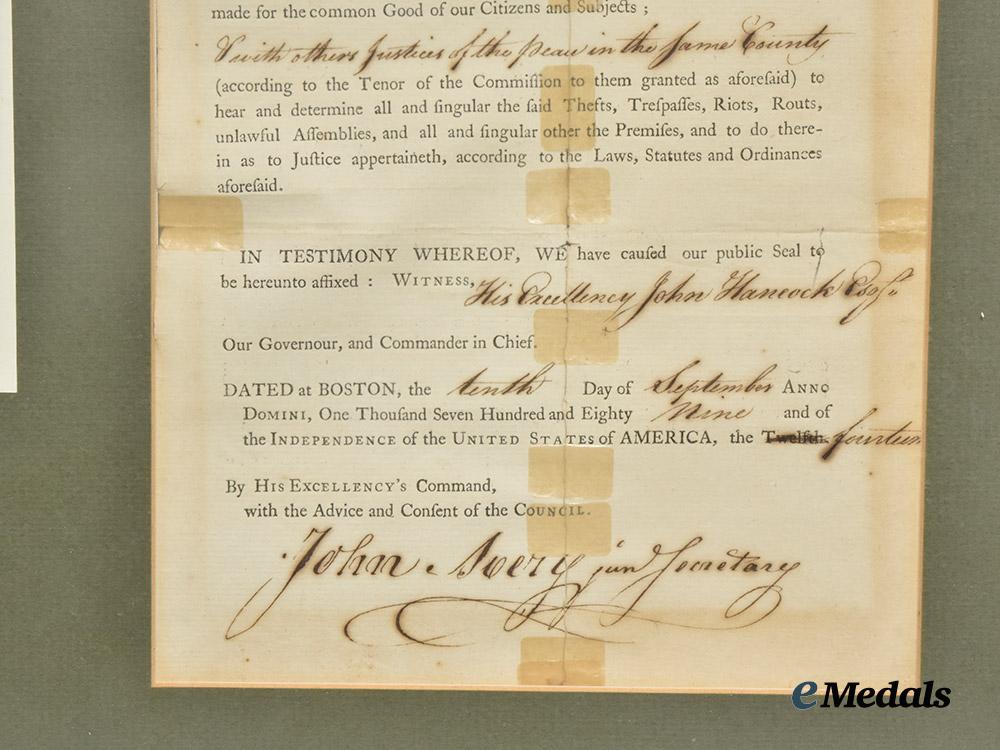 made for the common Good of our Citizens and Subjects ;
& with others Justices of the peace in the same County
(according to the Tenor of the Commiſſion to them granted as aforeſaid) to
hear and determine all and ſingular the ſaid Thefts, Treſpaſſes, Riots, Routs,
unlawful Aſſemblies, and all and ſingular other the Premiſes, and to do there-
in as to Juſtice appertaineth, according to the Laws, Statutes and Ordinances
aforeſaid.
IN TESTIMONY WHEREOF, WE have cauſed our public Seal to
be hereunto affixed : WITNESS, His Excellency John Hancock Esqr.
Our Governour, and Commander in Chief.
DATED at BOSTON, the tenth Day of September ANNO
DOMINI, One Thouſand Seven Hundred and Eighty Nine and of
the INDEPENDENCE of the UNITED STATES of AMERICA, the Twelfth. fourteen
By HIS EXCELLENCY'S Command,
with the Advice and Conſent of the COUNCIL.
John Avery jun Secretary
eMedals